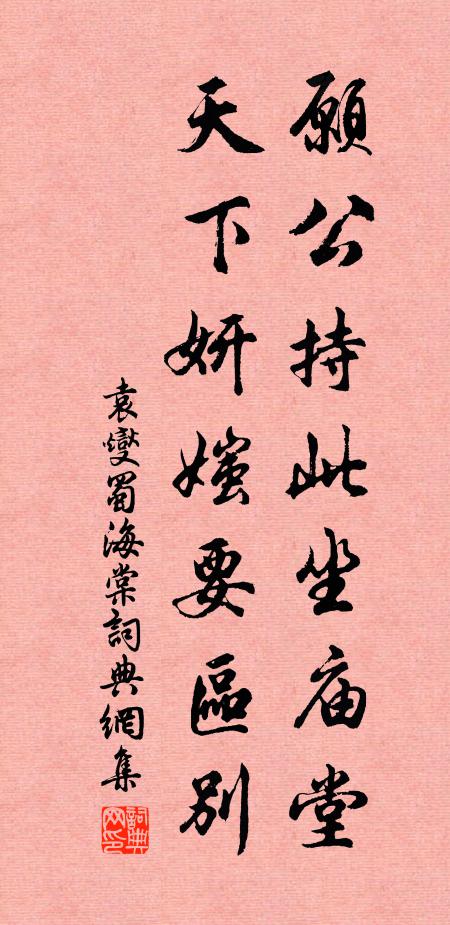 願公持此坐庙堂
天下妍媸要區別
袁燮蜀海棠詞典網集
詞典网印